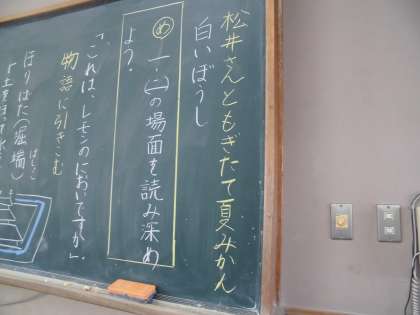 松井さんともぎたて夏みかん
白いぼうし
め 一・(二)の場面を読み深め
よう。
「これは、レモンのにおいですか」
物語に引きこむ
ほりばた(堀端)